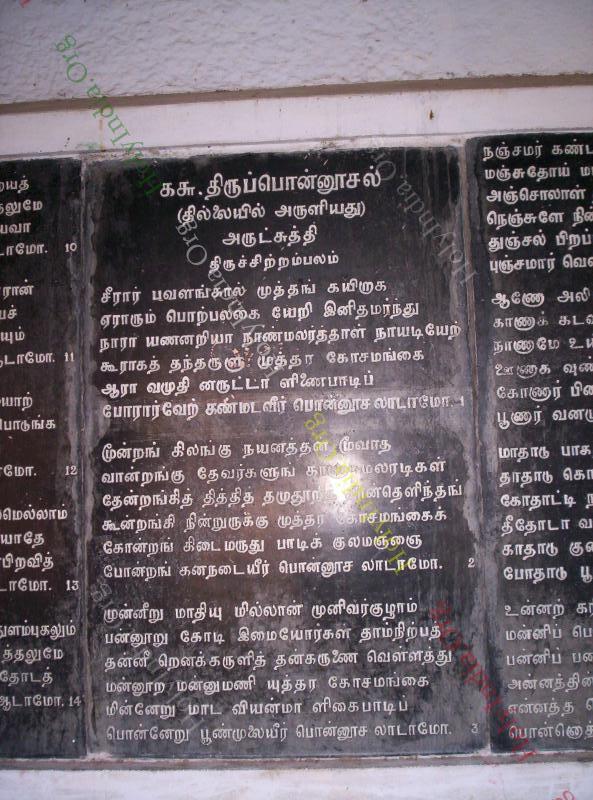 யைத்
தலுமே
யவா
டாமோ. 10
ரான்
யைச்
யும்
டாமோ. 11
யாற்
பொடுங்க
ாமோ. 12
மெல்லாம்
யாதே
பிறவித்
டாமோ. 13
ளம்புகலும்
த்தலுமே
தோடத்
ஆடாமோ. 14
கசு. திருப்பொன்னூசல்
(தில்லையில் அருளியது)
அருட்சுத்தி
திருச்சிற்றம்பலம்
சீரார் பவளங்கால் முத்தங் கயிறாக
ஏராரும் பொற்பலகை யேறி இனிதமர்ந்து
நாரா யணனறியா நாண்மலர்த்தாள் நாயடியேற்
கூராகத் தந்தருளு முத்தர கோசமங்கை
ஆரா வமுதி னருட்டா ளிணைபாடிப்
போரார்வேற் கண்மடவீர் பொன்னூச லாடாமோ. 1
மூன்றங் கிலங்கு நயனத்தன் மூவாத
வான்றங்கு தேவர்களுங் காணாமலரடிகள்
தேன்றங்கித் தித்தித் தமுதூறித் தான்தெளிந்தங்
கூன்றங்கி நின்றுருக்கு முத்தர கோசமங்கைக்
கோன்றங் கிடைமருது பாடிக் குலமஞ்ஞை
போன்றங் கனநடையீர் பொன்னூச லாடாமோ. 2
முன்னீறு மாதியு மில்லான் முனிவர்குழாம்
பன்னூறு கோடி இமையோர்கள் தாம்நிற்பத்
தன்னீ றெனக்கருளித் தன்கருணை வெள்ளத்து
மன்னூற மன்னுமணி யுத்தர கோசமங்கை
மின்னேறு மாட வியன்மா ளிகைபாடிப்
பொன்னேறு பூண்முலையீர் பொன்னூச லாடாமோ. 3
நஞ்சமர் கண்ட
மஞ்சுதோய் மா
அஞ்சொலாள்
நெஞ்சுளே நின்
துஞ்சல் பிறப்
புஞ்சமார் வெள்
ஆணோ அலி
காணாக் கடவு
நாணாமே உய்
ஊணாக வுண
கோணார் பிறை
பூணார் வனமு
மாதாடு பாக
தாதாடு கொ
கோதாட்டி ந
தீதோடா வ
காதாடு குண
போதாடு பூ
உன்னற் கரி
மன்னிப் பெ
பன்னிப் பண
அன்னத்தின்
என்னத்த
பொன்னொத்
HolyIndia.Org
HolyIndia.Org
HolyIndia.Org
HolyIndia.Org
HolyIndia.Org